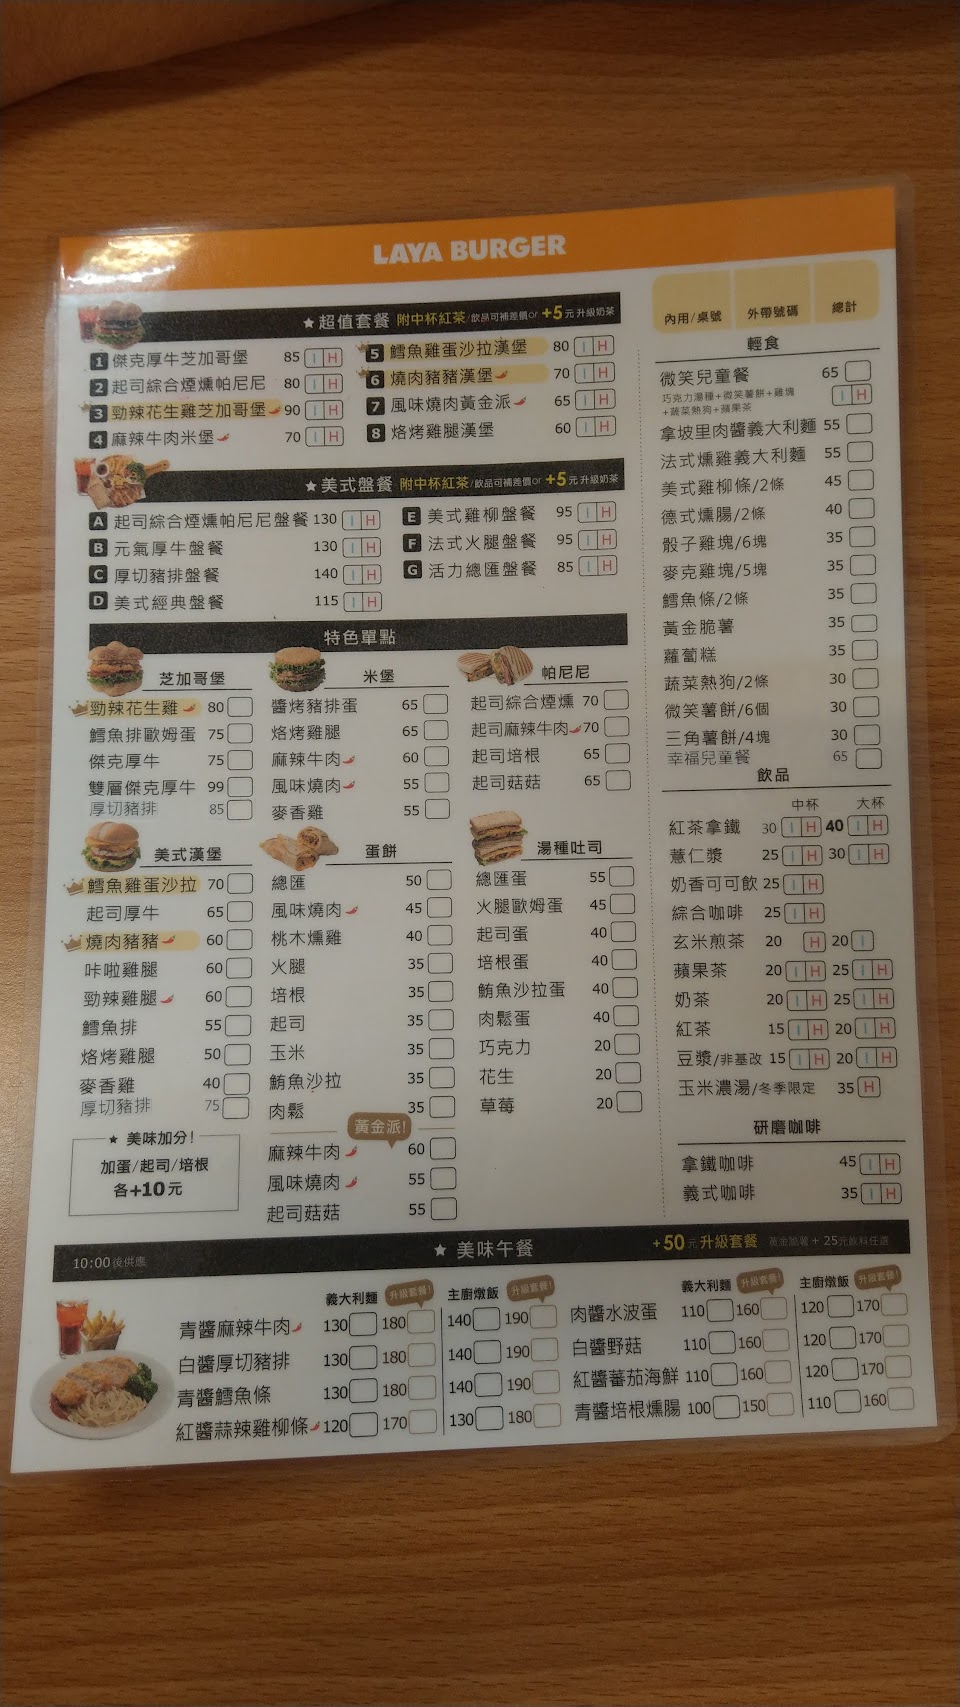 LAYA BURGER
內用/桌號 外帶號碼 總計
★超值套餐 附中杯紅茶/飲品可補差價or+5元升級奶茶
1 傑克厚牛芝加哥堡 85 I H
2 起司綜合煙燻帕尼尼 80 I H
3 勁辣花生雞芝加哥堡 90 I H
4 麻辣牛肉米堡 70 I H
5 鱈魚雞蛋沙拉漢堡 80 I H
6 燒肉豬豬漢堡 70 I H
7 風味燒肉黃金派 65 I H
8 烙烤雞腿漢堡 60 I H
★美式盤餐 附中杯紅茶/飲品可補差價or+5元升級奶茶
A 起司綜合煙燻帕尼尼盤餐 130 I H
B 元氣厚牛盤餐 130 I H
C 厚切豬排盤餐 140 I H
D 美式經典盤餐 115 I H
E 美式雞柳盤餐 95 I H
F 法式火腿盤餐 95 I H
G 活力總匯盤餐 85 I H
特色單點
芝加哥堡
勁辣花生雞 80
鱈魚排歐姆蛋 75
傑克厚牛 75
雙層傑克厚牛 99
厚切豬排 85
米堡
醬烤豬排蛋 65
烙烤雞腿 65
麻辣牛肉 60
風味燒肉 55
麥香雞 55
帕尼尼
起司綜合煙燻 70
起司麻辣牛肉 70
起司培根 65
起司菇菇 65
美式漢堡
鱈魚雞蛋沙拉 70
起司厚牛 65
燒肉豬豬 60
咔啦雞腿 60
勁辣雞腿 60
鱈魚排 55
烙烤雞腿 50
麥香雞 40
厚切豬排 75
★ 美味加分!
加蛋/起司/培根
各+10元
蛋餅
總匯 50
風味燒肉 45
桃木燻雞 40
火腿 35
培根 35
起司 35
玉米 35
鮪魚沙拉 35
肉鬆 35
黃金派!
麻辣牛肉 60
風味燒肉 55
起司菇菇 55
湯種吐司
總匯蛋 55
火腿歐姆蛋 45
起司蛋 40
培根蛋 40
鮪魚沙拉蛋 40
肉鬆蛋 40
巧克力 20
花生 20
草莓 20
輕食
微笑兒童餐 65
巧克力湯種+微笑薯餅+雞塊 I H
+蔬菜熱狗+蘋果茶
拿坡里肉醬義大利麵 55
法式燻雞義大利麵 55
美式雞柳條/2條 45
德式燻腸/2條 40
骰子雞塊/6塊 35
麥克雞塊/5塊 35
鱈魚條/2條 35
黃金脆薯 35
蘿蔔糕 35
蔬菜熱狗/2條 30
微笑薯餅/6個 30
三角薯餅/4塊 30
幸福兒童餐 65
飲品
中杯 大杯
紅茶拿鐵 30 I H 40 I H
薏仁漿 25 I H 30 I H
奶香可可飲 25 I H
綜合咖啡 25 I H
玄米煎茶 20 H 20 I
蘋果茶 20 I H 25 I H
奶茶 20 I H 25 I H
紅茶 15 I H 20 I H
豆漿/非基改 15 I H 20 I H
玉米濃湯/冬季限定 35 H
研磨咖啡
拿鐵咖啡 45 I H
義式咖啡 35 I H
10:00後供應 ★ 美味午餐 +50元升級套餐 黃金脆薯+25元飲料任選
義大利麵 升級套餐! 主廚燉飯 升級套餐!
青醬麻辣牛肉 130 180 140 190
白醬厚切豬排 130 180 140 190
青醬鱈魚條 130 180 140 190
紅醬蒜辣雞柳條 120 170 130 180
義大利麵 升級套餐! 主廚燉飯 升級套餐!
肉醬水波蛋 110 160 120 170
白醬野菇 110 160 120 170
紅醬蕃茄海鮮 110 160 120 170
青醬培根燻腸 100 150 110 160